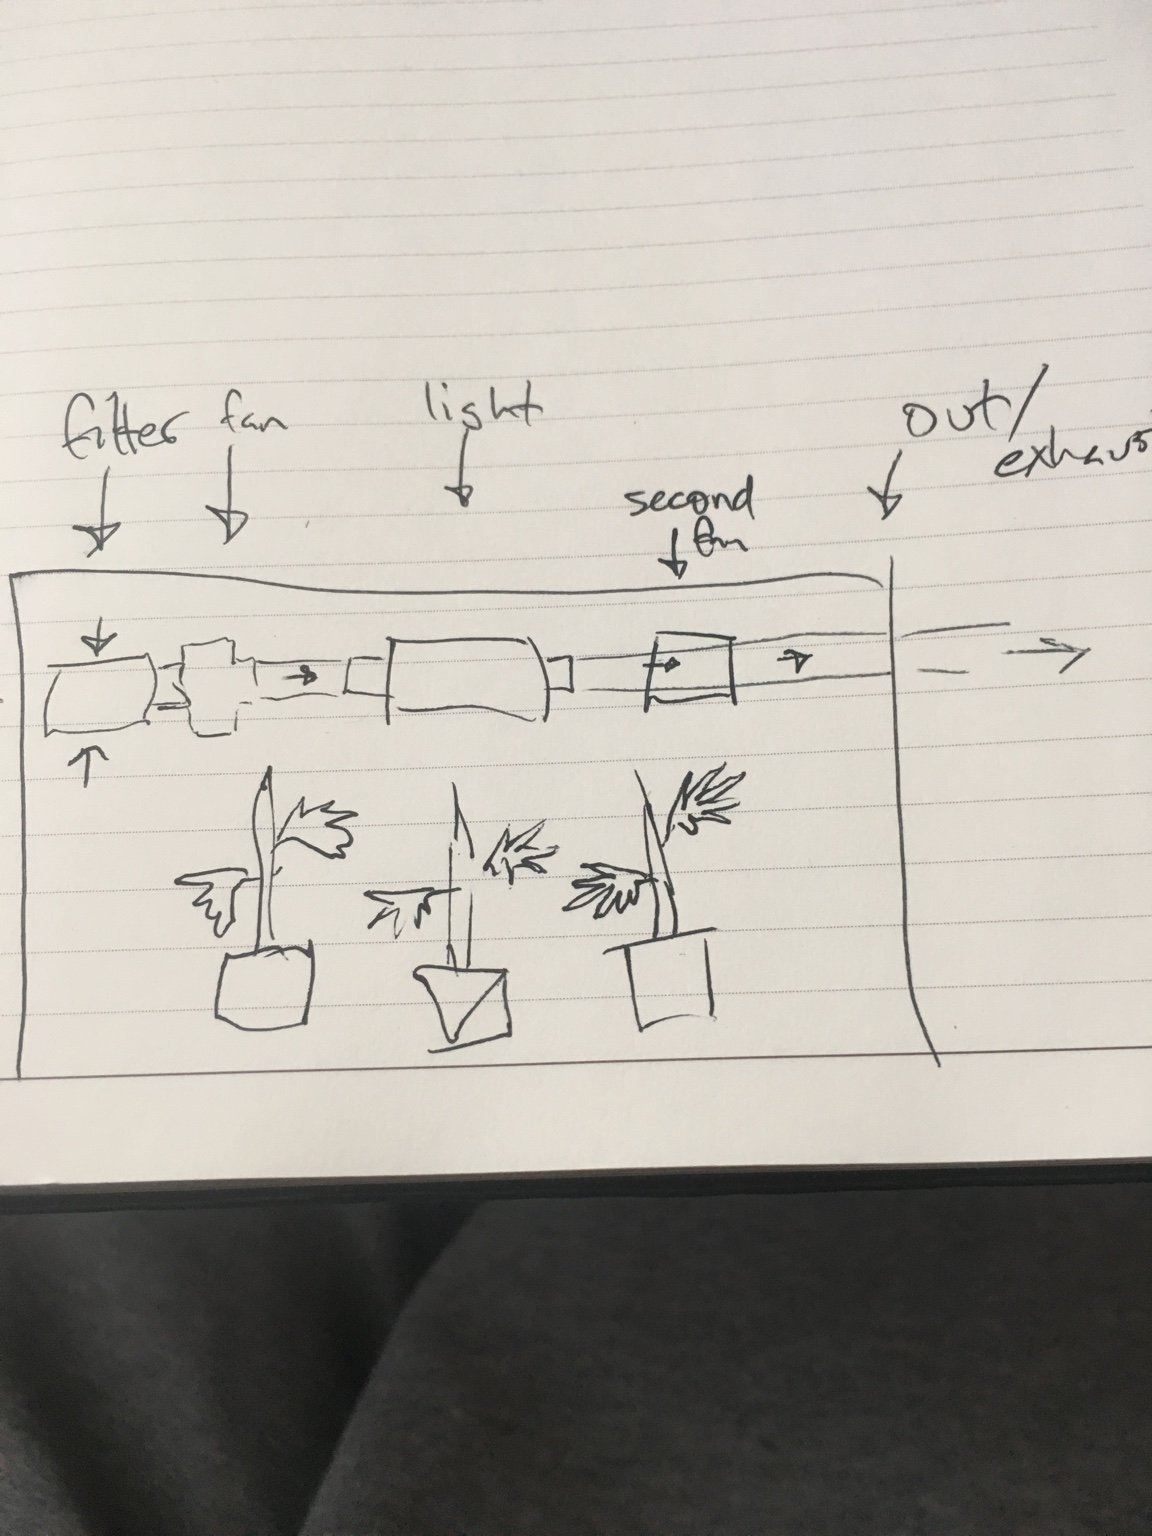 filter fan
light
out/
exhaust
second
fan